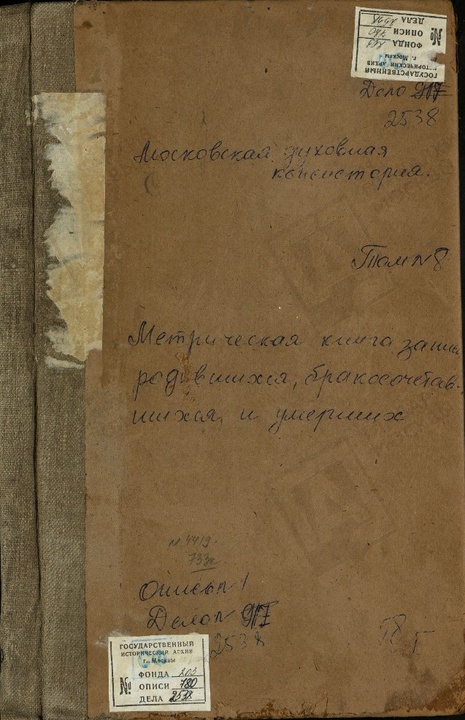 ГОСУДАРСТВЕННЫЙ
ИСТОРИЧЕСКИЙ АРХИВ
г. Москвы
№
ФОНДА 203
ОПИСИ 780
ДЕЛА
Дело 917
2538
Московская духовная
консистория.
Том № 8
Метрическая книга записи
родившихся, бракосочетав-
шихся, и умерших
Опись № 1
Дело № 917
2538
ГОСУДАРСТВЕННЫЙ
ИСТОРИЧЕСКИЙ АРХИВ
г. Москвы
№
ФОНДА 203
ОПИСИ 780
ДЕЛА 2538